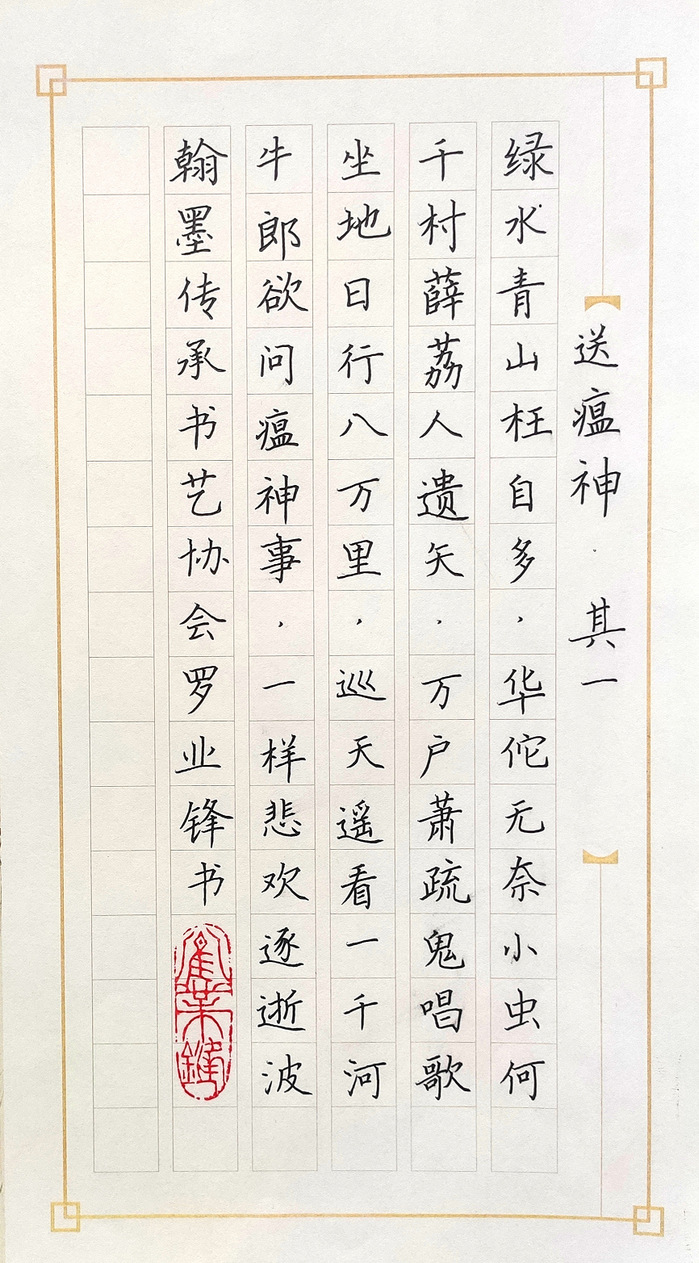 送瘟神·其一
绿水青山枉自多，华佗无奈小虫何
千村薜荔人遗矢，万户萧疏鬼唱歌
坐地日行八万里，巡天遥看一千河
牛郎欲问瘟神事，一样悲欢逐逝波
翰墨传承书艺协会罗业锋书
羅業鋒